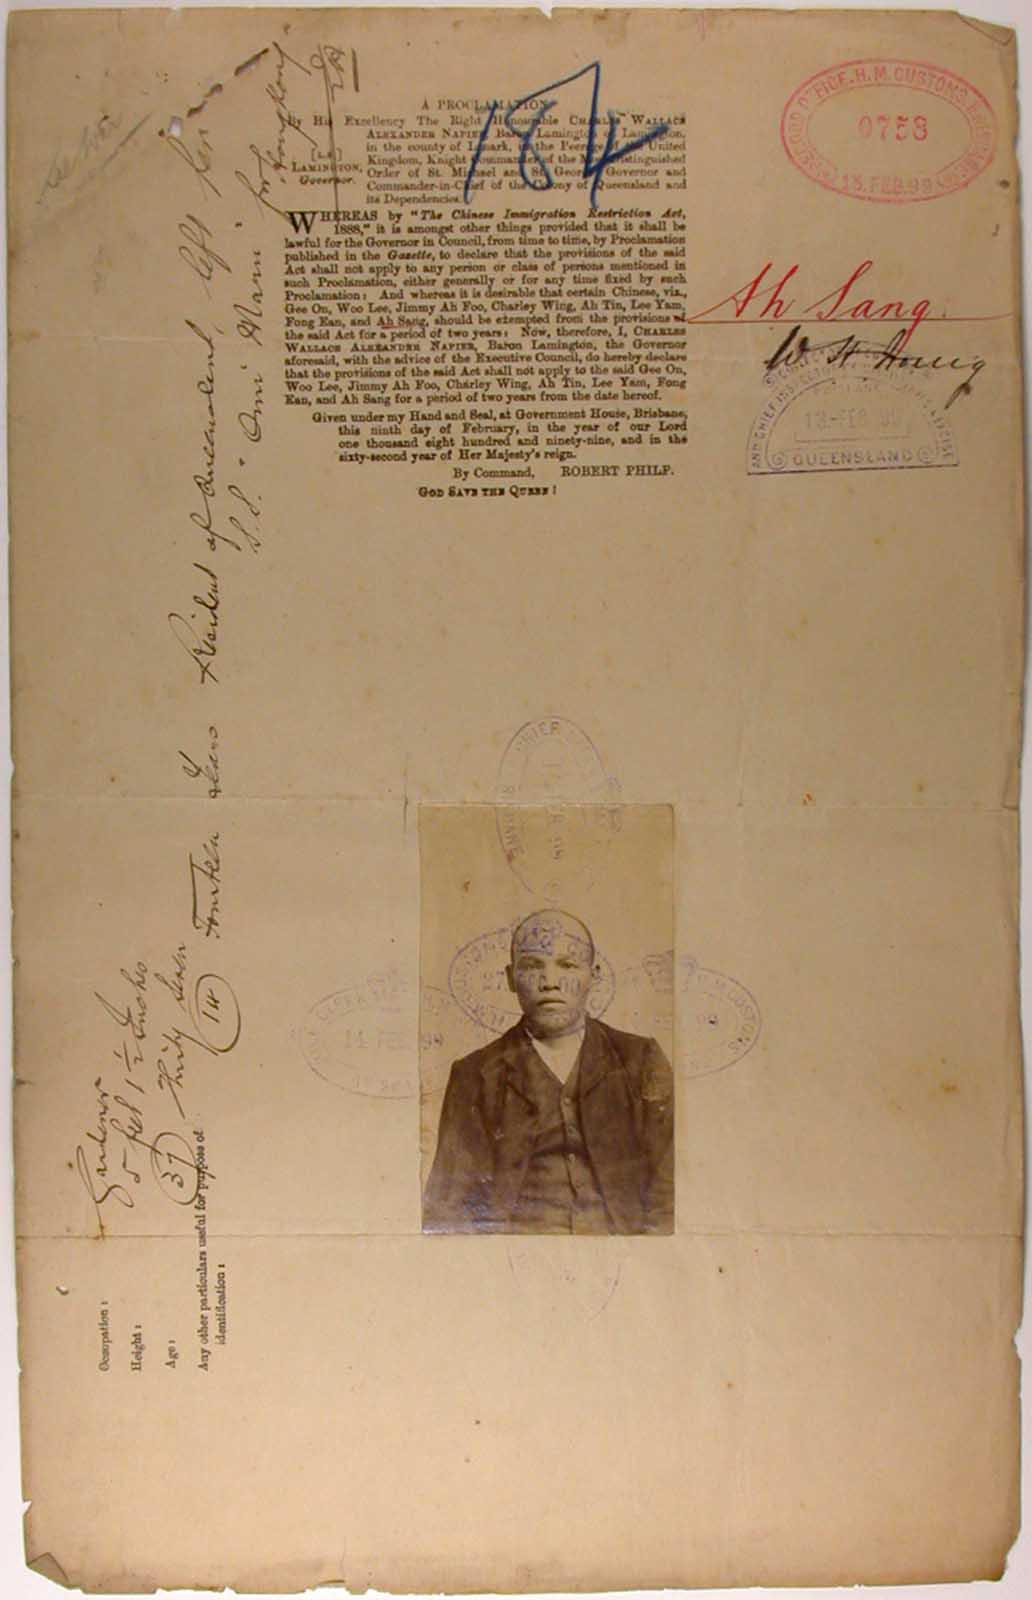 184
RECORD OFFICE. H. M. CUSTOMS. BRISBANE
0758
13. FEB. 99
A PROCLAMATION
By His Excellency The Right Honourable CHARLES WALLACE
ALEXANDER NAPIER, Baron Lamington of Lamington,
in the county of Lanark, in the Peerage of the United
Kingdom, Knight Commander of the Most Distinguished
Order of St. Michael and St. George, Governor and
Commander-in-Chief of the Colony of Queensland and
its Dependencies.
[L.S.]
LAMINGTON,
Governor.
WHEREAS by "The Chinese Immigration Restriction Act,
1888," it is amongst other things provided that it shall be
lawful for the Governor in Council, from time to time, by Proclamation
published in the Gazette, to declare that the provisions of the said
Act shall not apply to any person or class of persons mentioned in
such Proclamation, either generally or for any time fixed by such
Proclamation: And whereas it is desirable that certain Chinese, viz.,
Gee On, Woo Lee, Jimmy Ah Foo, Charley Wing, Ah Tin, Lee Yam,
Fong Ean, and Ah Sang, should be exempted from the provisions of
the said Act for a period of two years: Now, therefore, I, CHARLES
WALLACE ALEXANDER NAPIER, Baron Lamington, the Governor
aforesaid, with the advice of the Executive Council, do hereby declare
that the provisions of the said Act shall not apply to the said Gee On,
Woo Lee, Jimmy Ah Foo, Charley Wing, Ah Tin, Lee Yam, Fong
Ean, and Ah Sang for a period of two years from the date hereof.
Given under my Hand and Seal, at Government House, Brisbane,
this ninth day of February, in the year of our Lord
one thousand eight hundred and ninety-nine, and in the
sixty-second year of Her Majesty's reign.
By Command, ROBERT PHILP.
GOD SAVE THE QUEEN!
Ah Sang.
13-FEB.99
QUEENSLAND
Occupation: Gardener
Height: 5 feet 1 ½ Inches
Age: (37) Thirty Seven
Any other particulars useful for purpose of
identification:
(14) Fourteen Years Resident of Queensland, left per
S.S. "Omi Maru" for
Hongkong
14 FEB 99
CUSTOMS